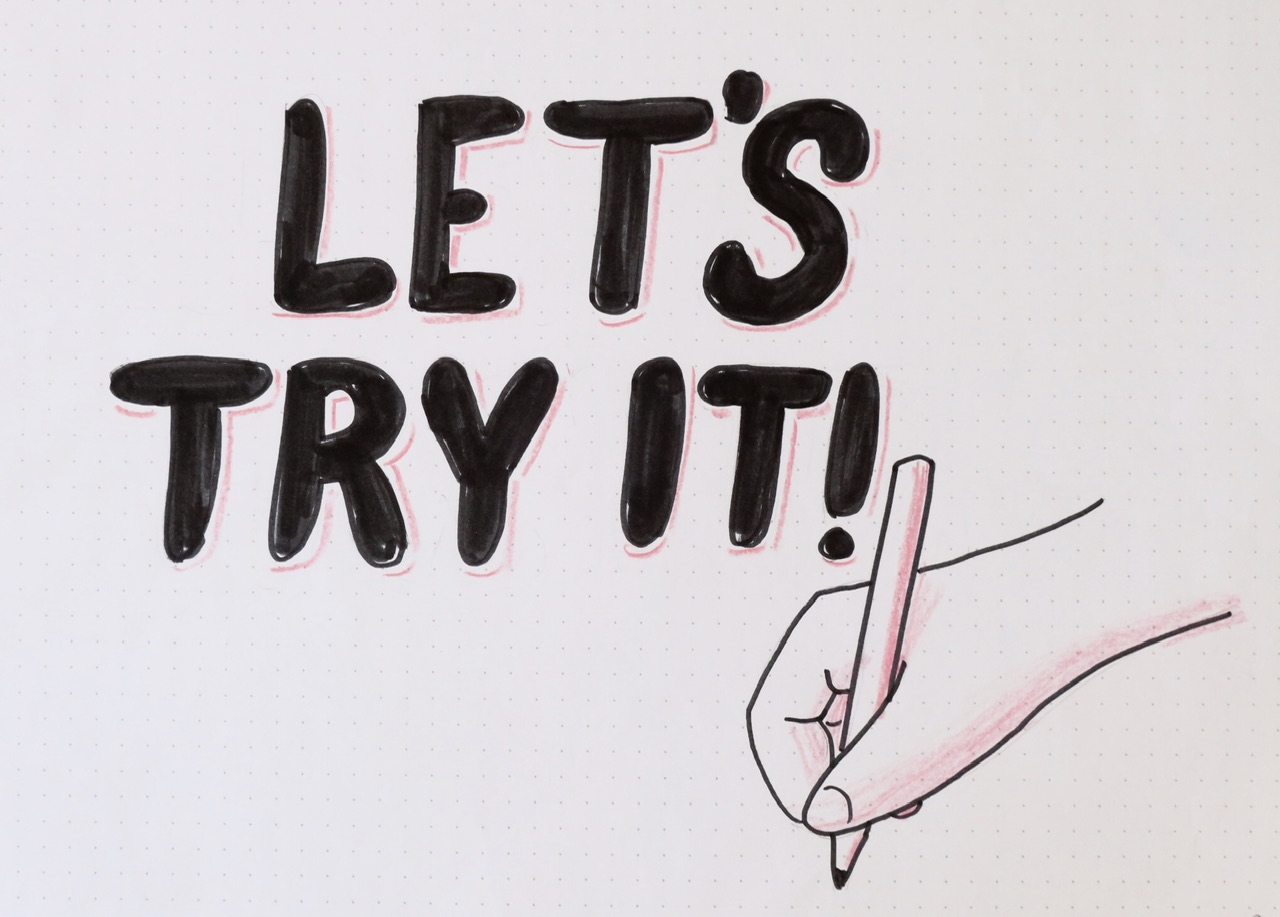 LET'S
TRY IT!